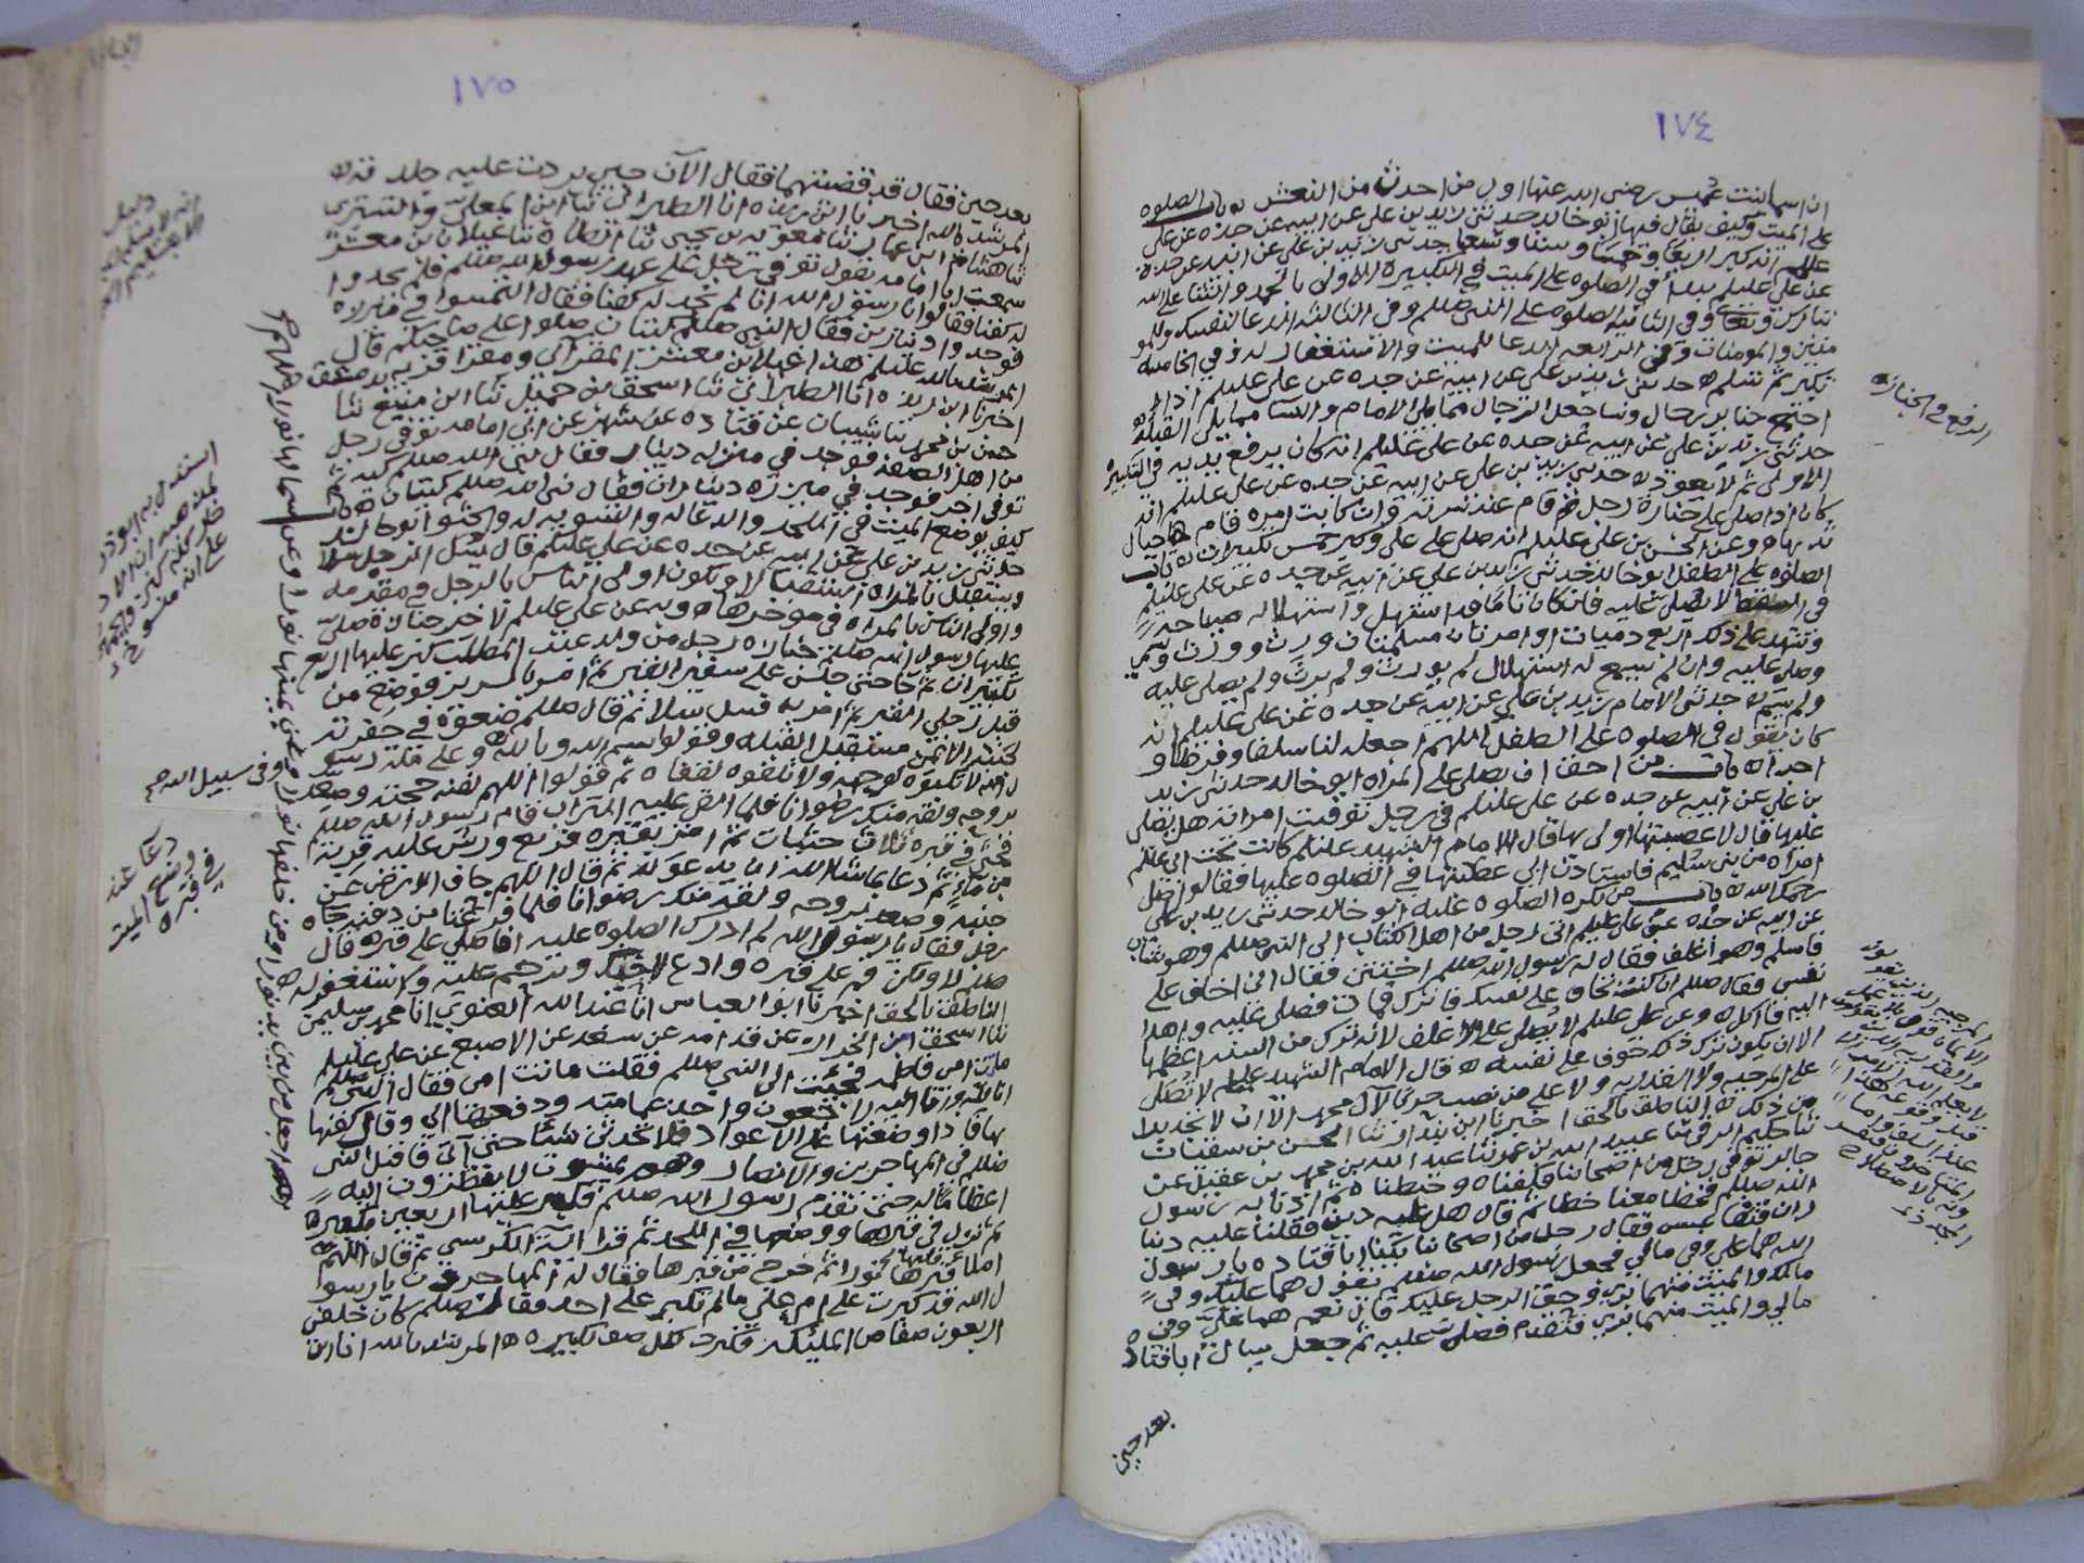 ١٧٤
ان اسما بنت عميس رضي الله عنها اول من احدث من النعش باب الصلوه
على الميت وكيف يقال فيها ابو خالد حدثني زيد بن علي عن ابيه عن جده عن علي
عليلم انه كبر اربعا وخمسا وستا وسبعا حدثني زيد بن علي عن ابيه عن جده
عن علي عليلم يبدا في الصلوه على الميت في التكبيره الاولى بالحمد والثنا على الله
تبارك وتعالى وفي الثانيه الصلوه على النبي صللم وفي الثالثه الدعا لنفسك وللمو
منين والمومنات وفي الرابعه الدعا للميت والاستغفار له وفي الخامسه
تكبر ثم تسلم ه حدثني زيد بن علي عن ابيه عن جده عن علي عليلم اذا
اجتمع جنايز رجال ونسا جعل الرجال مما يلي الامام والنسا مما يلي القبله
حدثني زيد بن علي عن ابيه عن جده عن علي عليلم انه كان يرفع يديه في التكبيره
الاولى ثم لا يعود ه حدثني زيد بن علي عن ابيه عن جده عن علي عليلم انه
كان اذا صلى على جنازة رجل قام عند سرته وان كانت امره قام حيال
ثدييها ه وعن الحسن بن علي عليلم انه صلى على علي وكبر خمس تكبيرات ه باب
الصلوه على الطفل ابو خالد حدثني زيد بن علي عن ابيه عن جده عن علي عليلم
في السقط لا يصلى عليه فان كان تاما قد استهل واستهلاله صياحه
وشهد على ذلك اربع نسوه او امرتان مسلمتان ورث وورث وسمي
وصلي عليه وان لم يسمع له استهلال لم يورث ولم يرث ولم يصلى عليه
ولم يسم ه حدثني الامام زيد بن علي عن ابيه عن جده عن علي عليلم انه
كان يقول في الصلوه على الطفل اللهم اجعله لنا سلفا وفرطا و
اجرا ه باب من احق ان يصلي على المراه ابو خالد حدثني زيد
بن علي عن ابيه عن جده عن علي عليلم في رجل توفيت امراته هل يصلي
عليها قال لا عصبتها اولى بها قال الامام الشهيد عليلم كانت تحت ابي عليلم
امراه من بني سليم فاستاذن ابي عصبتها في الصلوه عليها فقالوا صل
رحمك الله ه باب من تكره الصلوه عليه ابو خالد حدثني زيد بن علي
عن ابيه عن جده عن علي عليلم اتى رجل من اهل الكتاب الى النبي صللم وهو شاب
فاسلم وهو اغلف فقال له رسول الله صللم اختتن فقال اني اخاف على
نفسي فقال صللم ان كنت تخاف على نفسك فاترك فمات فصلى عليه واهدا
اليه فاكل ه وعن علي عليلم لا يصلى على الاغلف لانه ترك من السنه اعظمها
الا ان يكون ترك ذلك خوفا على نفسه ه قال الامام الشهيد عليلم لا تصل
على المرجيه ولا القدريه ولا على من نصب حربا لآل محمد الا ان لا تجد بدا
من ذلك ه الناطق بالحق اخبرنا ابن بندار ثنا الحسن بن سفيان
ثنا حكيم الرقي ثنا عبيد الله بن عمرو ثنا عبد الله بن محمد بن عقيل عن
جابر توفي رجل من اصحابنا فكفناه وحنطناه ثم اذنا به رسول
الله صللم فخطا معنا خطا ثم قال هل عليه دين فقلنا عليه دينا
ران فقال رجل من اصحابنا يكنا ابا قتاده يا رسول
الله هما علي وفي مالي فجعل رسول الله صللم يقول هما عليك وفي
مالك والميت منهما بري وحق الرجل عليك قال نعم هما علي وفي
مالي والميت منهما بري فتقدم فصلى عليه ثم جعل يسال ابا قتاده
بعد حين
الرفع في الجنازه
١٧٥
بعد حين فقال قد قضيتهما فقال الآن حين بردت عليه جلدته ه
المرشد بالله اخبرنا ابن ريذه انا الطبراني ثنا ابن المعلى والتستري
ثنا هشام بن عمار ثنا معويه بن يحيى ثنا ارطاة ثنا غيلان بن معشر
سمعت ابا امامه يقول توفي رجل على عهد رسول الله صللم فلم يجدوا
له كفنا فقالوا يا رسول الله انا لم نجد له كفنا فقال التمسوا في منزله
فوجدوا دينارين فقال النبي صللم كيتان صلوا على صاحبكم قال
المرشد بالله عليلم هذا غيلان بن معشر المقرائي ومقرا قريه بدمشق
اخبرنا ابن ريذه انا الطبراني ثنا اسحق بن جميل ثنا ابن منيع ثنا
حسن بن محمد ثنا شيبان عن قتاده عن شهر عن ابي امامه توفي رجل
من اهل الصفه فوجد في ميزره دينار فقال نبي الله صللم كيه ثم
توفي اخر فوجد في ميزره ديناران فقال نبي الله صللم كيتان ه باب
كيف يوضع الميت في اللحد والدعا له والتسويه له والحثو ابو خالد
حدثني زيد بن علي عن ابيه عن جده عن علي عليلم قال يسل الرجل سلا
ويستقبل بالمراه استقبالا ويكون اولى الناس بالرجل في مقدمه
واولى الناس بالمراه في موخرها ه وبه عن علي عليلم لاخر جنازة صلى
عليها رسول الله صللم جنازه رجل من ولد عبد المطلب كبر عليها اربع
تكبيرات ثم جا حتى جلس على شفير القبر ثم امر بالسرير فوضع من
قبل رجلي القبر ثم امر به فسل سلا ثم قال صللم ضعوه في حفرته
لجنبه الايمن مستقبل القبله وقولوا بسم الله وبالله وفي سبيل الله وعلى مله رسو
ل الله لا تكبوه لوجهه ولا تلقوه لقفاه ثم قولوا اللهم لقنه حجته وصعد
بروحه ولقه منك رضوانا فلما القي عليه التراب قام رسول الله صللم
فحثى في قبره ثلاث حثيات ثم امر بقبره فربع ورش عليه قربه
من ماء ثم دعا بما شا الله ان يدعو له ثم قال اللهم جاف الارض عن
جنبيه وصعد بروحه ولقه منك رضوانا فلما فرغنا من دفنه جاه
رجل فقال يا رسول الله لم ادرك الصلوه عليه افاصلي على قبره قال
صللم لا ولكن قم على قبره وادع لاخيك وترحم عليه واستغفر له ه
الناطق بالحق اخبرنا ابو العباس انا عبد الله الغنوي انا محمد بن سليمن
ثنا اسحق عن قدامه عن سعد عن الاصبغ عن علي عليلم
ماتت امي فاطمه فجئت الى النبي صللم فقلت ماتت امي فقال النبي صللم
انا لله وانا اليه راجعون واخذ عمامته ودفعها الي وقال كفنها
بها فاذا وضعتها على الاعواد فلا تحدثن شيئا حتى آتي فاقبل النبي
صللم في المهاجرين والانصار وهم يمشون لا ينظرون اليه
اعظاما له حتى تقدم رسول الله صللم فكبر عليها اربعين تكبيره
ثم نزل في قبرها ووضعها في اللحد ثم قرا اية الكرسي ثم قال اللهم
املا قبرها نورا ثم خرج من قبرها فقال له المهاجرون يا رسو
ل الله قد كبرت على ام علي ما لم تكبر على احد فقال صللم كان خلفي
اربعون صفا من المليكه فكبرت لكل صف تكبيره ه المرشد بالله انا ابن
وفي سبيل الله صح
دعا عند
وضع الميت
في قبره